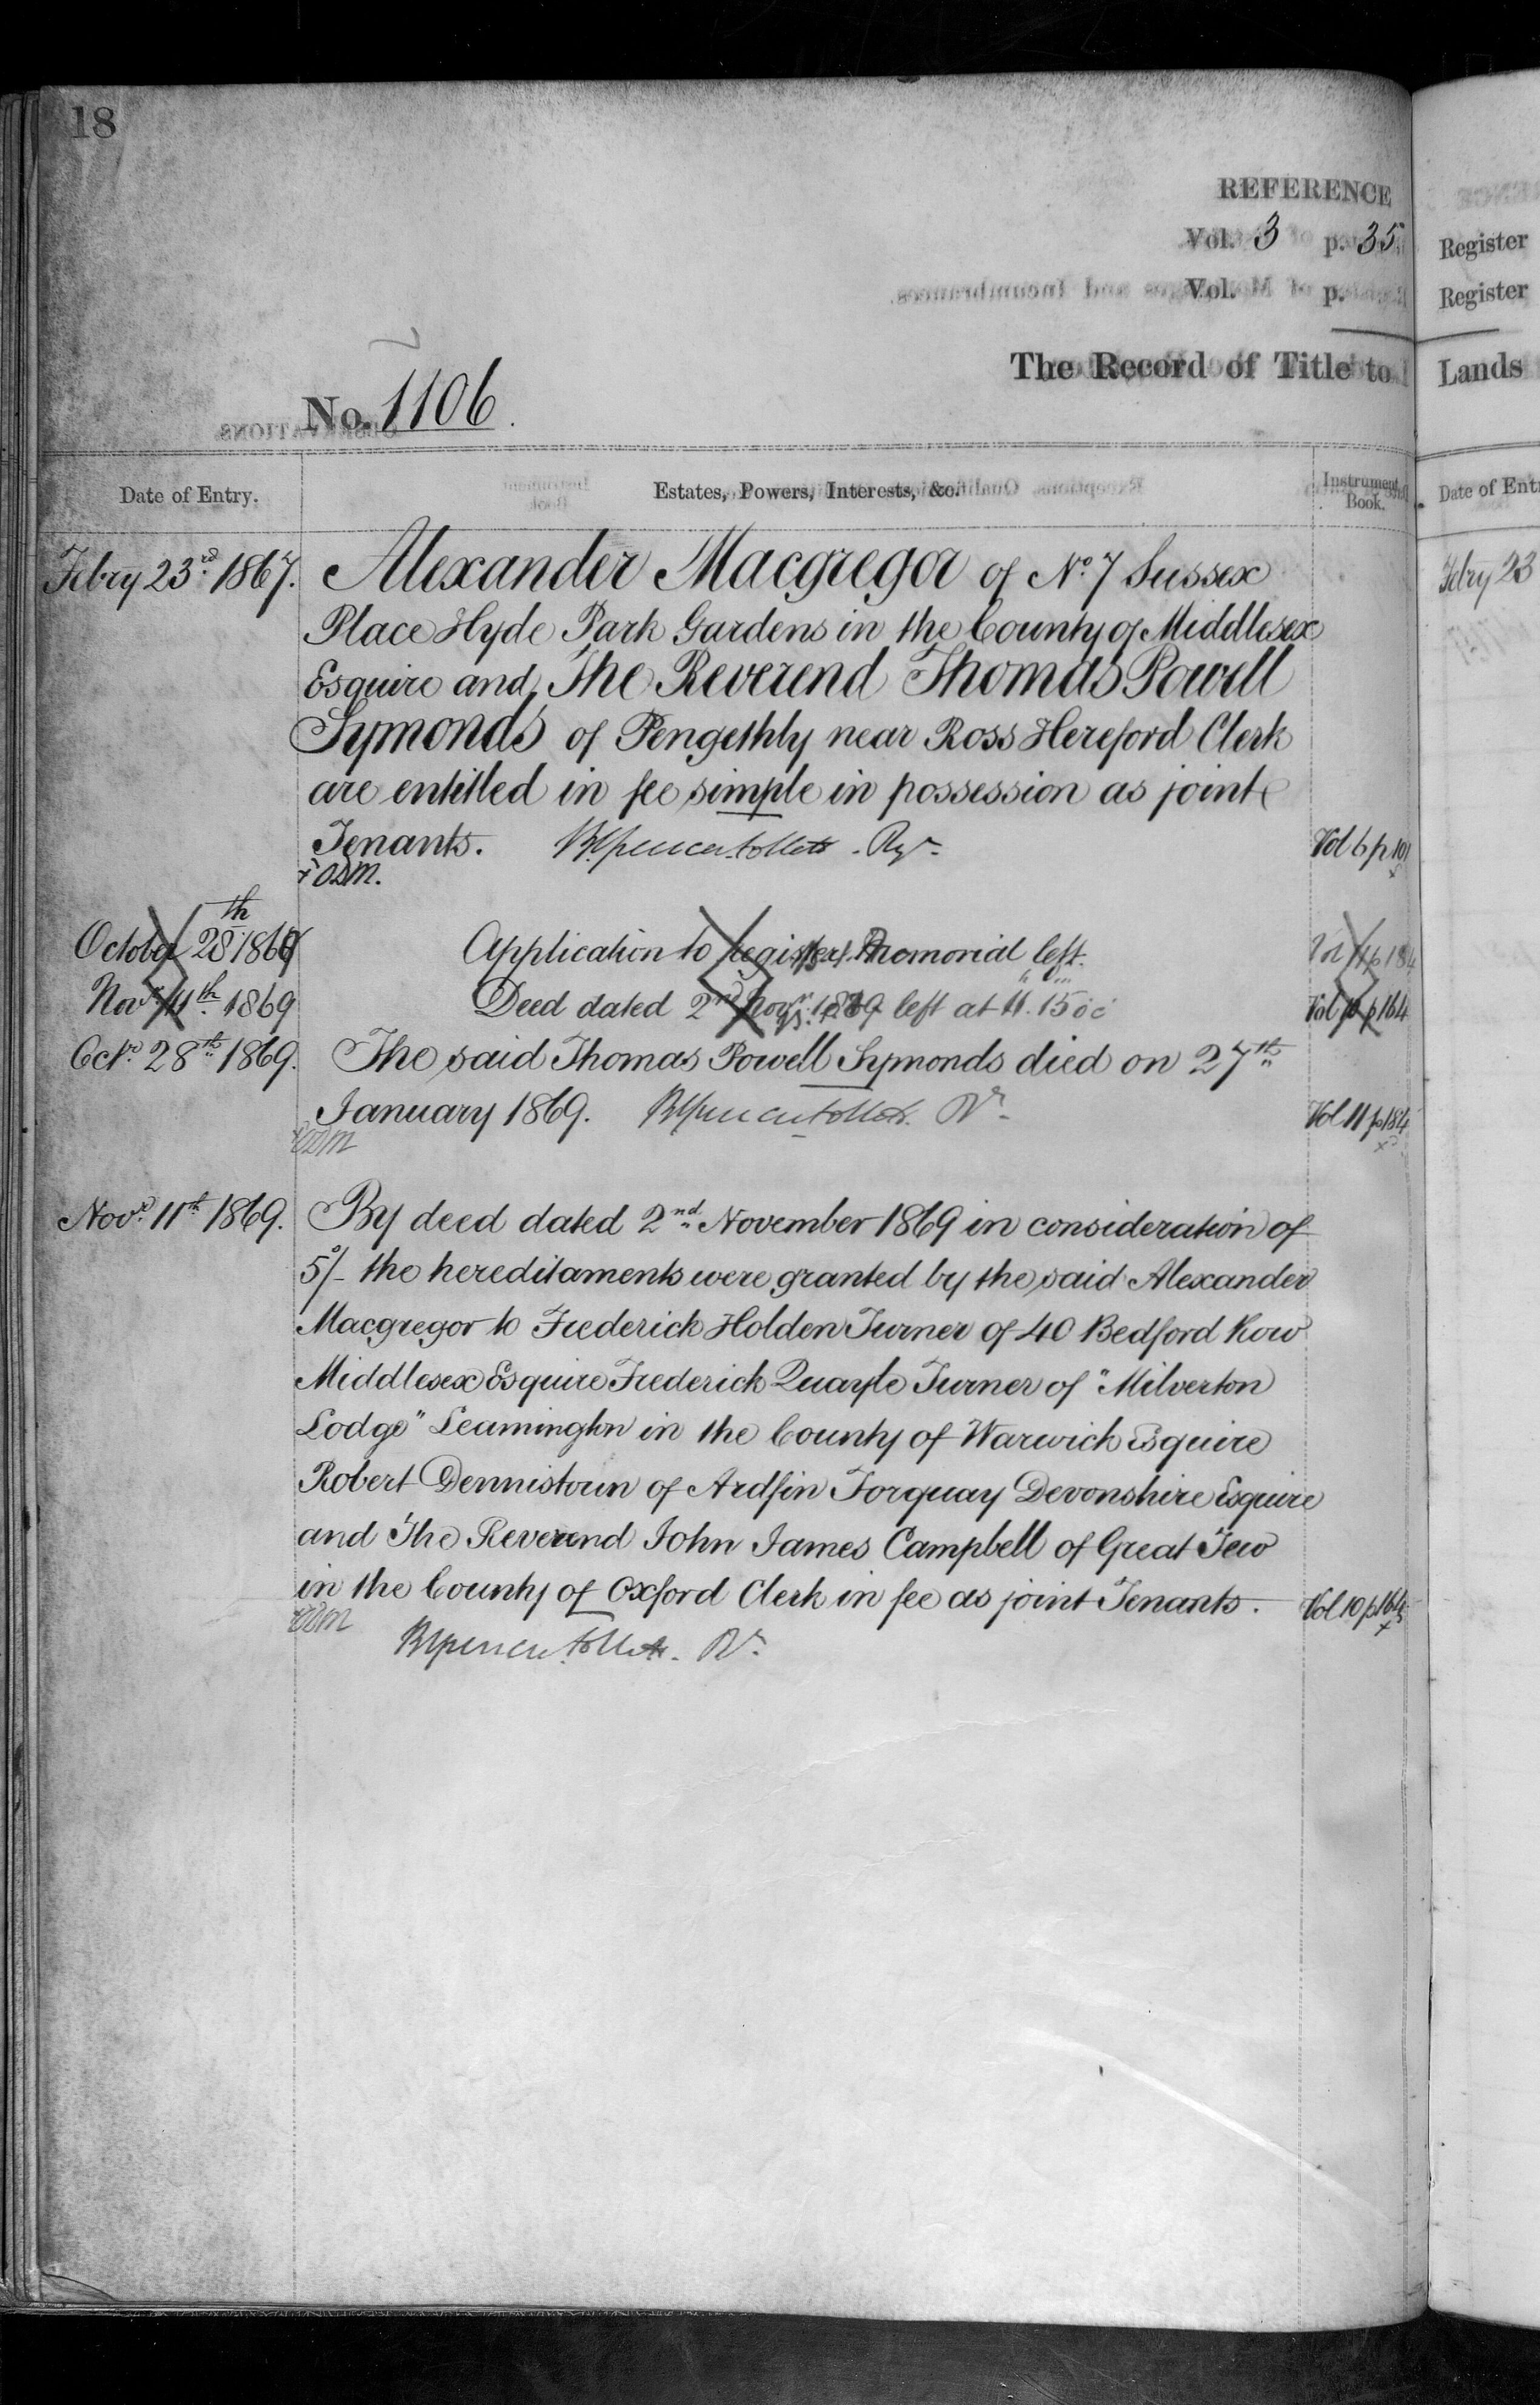 18
REFERENCE
Vol. 3 p. 35
Vol. p.
The Record of Title to
No. 1106.
Date of Entry. Estates, Powers, Interests, &c. Instrument Book.
Febry 23rd 1867. Alexander Macgregor of No. 7 Sussex
Place Hyde Park Gardens in the County of Middlesex
Esquire and The Reverend Thomas Powell
Symonds of Pengethly near Ross Hereford Clerk
are entitled in fee simple in possession as joint
Tenants. Vol 6 p 101
October 28th 1869 Application to register memorial left. Vol 11 p 184
Novr. 11th 1869 Deed dated 2nd Novr. 1869 left at 11.15 Vol 10 p 164
Octr. 28th 1869. The said Thomas Powell Symonds died on 27th
January 1869. Vol 11 p 184
Novr. 11th 1869. By deed dated 2nd November 1869 in consideration of
5/- the hereditaments were granted by the said Alexander
Macgregor to Frederick Holden Turner of 40 Bedford Row
Middlesex Esquire Frederick Quayle Turner of "Milverton
Lodge" Leamington in the County of Warwick Esquire
Robert Dennistoun of Ardfin Torquay Devonshire Esquire
and The Reverend John James Campbell of Great Tew
in the County of Oxford Clerk in fee as joint Tenants. Vol 10 p 164
Register
Register
Lands
Date of Ent
Febry 23